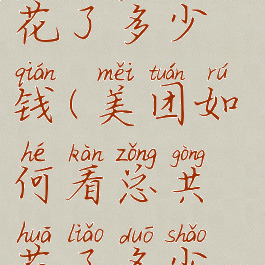 花了多少
qián měi tuán rú
钱(美团如
hé kàn zǒng gòng
何看总共
huā liǎo duō shǎo
花了多少